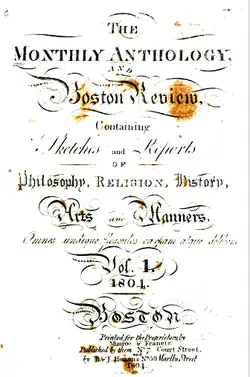 The
Monthly Anthology,
AND
Boston Review,
Containing
Sketches and Reports
OF
Philosophy, Religion, History,
Arts and Manners.
Omnes undique
Vol. 1.
1804.
Boston
Printed for the Proprietors, by
Munroe & Francis.
Published by them No 7 Court Street.
by B & J No 50 Marlbo. Street
1804